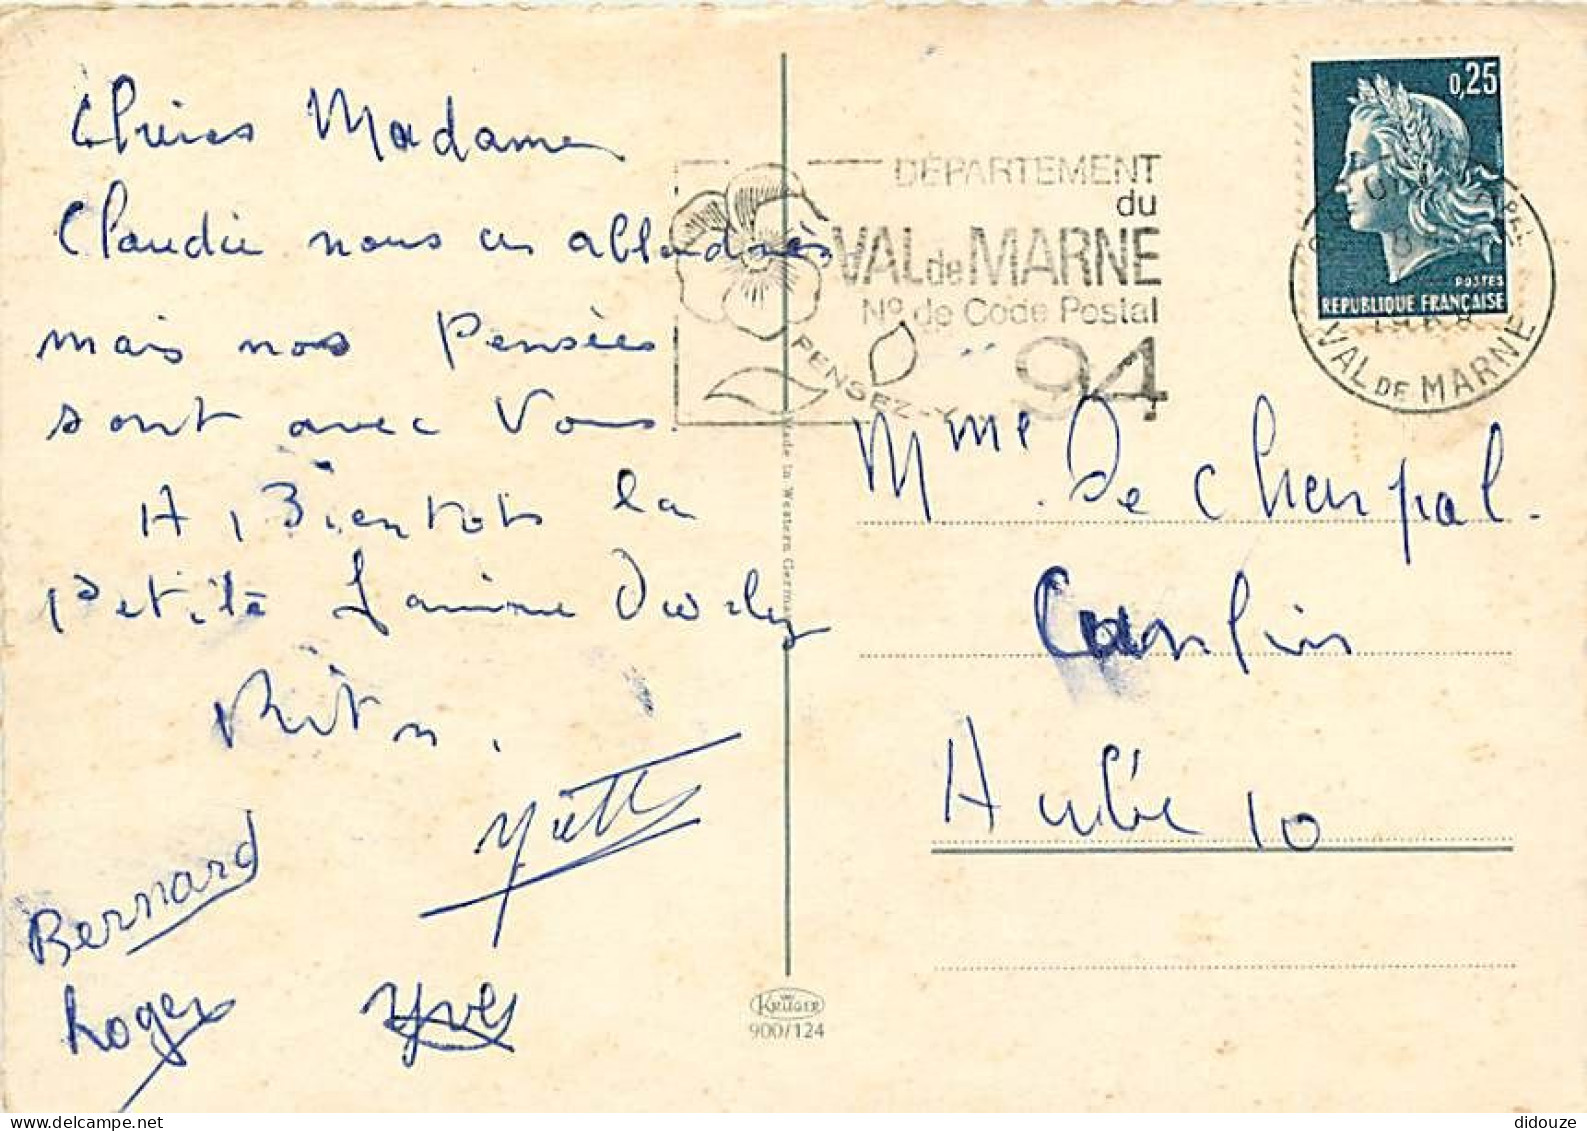 Chères Madame
Claudie nous
mais nos Pensées
sont avec Vous.
A Bientots la
petite
Rita.
Yvette
Bernard
Roger Yves
DÉPARTEMENT
du
VAL de MARNE
Nº de Code Postal
94
PENSEZ-Y
0,25
POSTES
RÉPUBLIQUE FRANÇAISE
VAL DE MARNE
Mme De Charpal.
Aube 10
Made in Western Germany
KRÜGER
900/124
didouze
delcampe.net